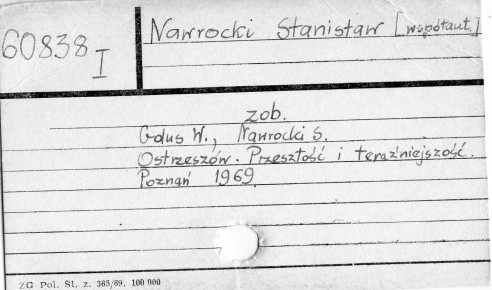 60838 I
Nawrocki Stanisław [współaut.]
zob.
Gdus W., Nawrocki S.
Ostrzeszów. Przeszłość i teraźniejszość.
Poznań 1969
ZG Pol. St. z. 365/69, 100 000